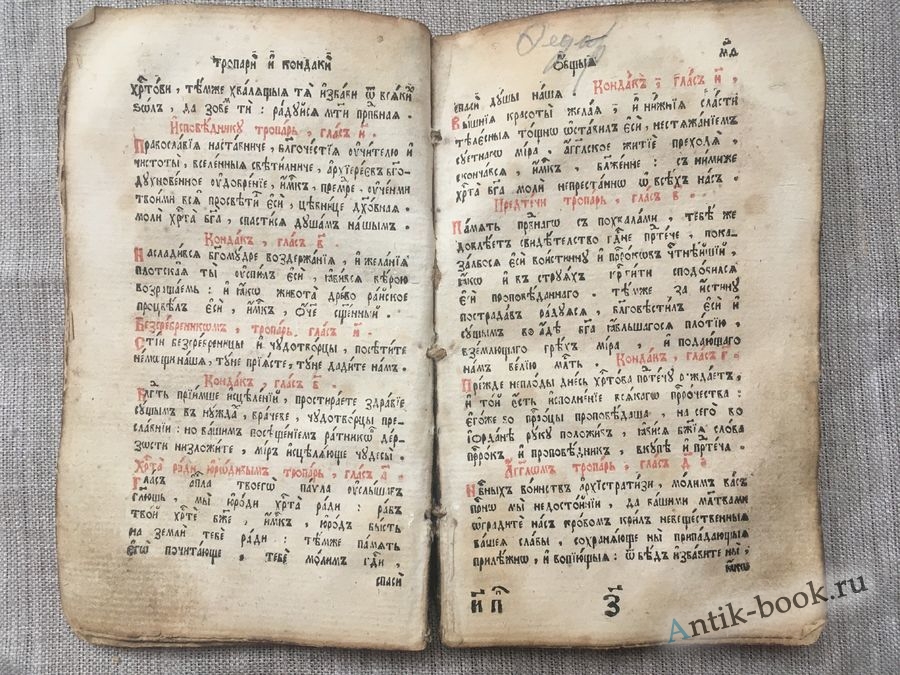 тропари́ и҆ кондаки́
хрⷭ҇тови, тѣ́мже хвалѧ́щыѧ тѧ̀ и҆зба́ви ѿ всѧ́кихъ
ѕѡ́лъ, да зове́тъ ти: ра́дꙋйсѧ мт҃и прпⷣбнаѧ.
И҆сповѣ́дникꙋ тропа́рь, гла́съ и҃.
Правосла́вїѧ наста́вниче, бл҃гоче́стїѧ ᲂу҆чи́телю и҆
чистоты̀, вселе́нныѧ свѣти́лниче, а҆рхїере́євъ бг҃о-
дꙋхнове́нное ᲂу҆добре́нїе, и҆́мⷬ҇къ, премⷣре, ᲂу҆че́ньми
твои́ми всѧ̑ просвѣти́лъ є҆сѝ, цѣ́внице дꙋхо́внаѧ.
молѝ хрⷭ҇та̀ бг҃а, спасти́сѧ дꙋша́мъ на́шымъ.
Конда́къ, гла́съ в҃.
Наслади́всѧ бг҃омꙋ́дре воздержа́нїѧ, и҆ жела̑нїѧ
плотска̑ѧ ты̀ ᲂу҆спи́лъ є҆сѝ, ꙗ҆ви́всѧ вѣ́рою
возраща́емь: и҆ ꙗ҆́кѡ живота̀ дре́во ра́йское
процвѣ́лъ є҆сѝ, и҆́мⷬ҇къ, ѻ҆́ч҃е сщ҃е́нный.
Безсре́бренникѡмъ, тропа́рь, гла́съ и҃.
Ст҃і́и безсре́бренницы и҆ чꙋдотво́рцы, посѣти́те
нє́мѡщи на́шѧ, тꙋ́не прїѧ́сте, тꙋ́не дади́те на́мъ.
Конда́къ, гла́съ в҃.
Бл҃года́ть прїи́мше и҆сцѣле́нїй, простира́ете здра́вїе
сꙋ́щымъ въ нꙋ́ждахъ, вра́чеве, чꙋдотво́рцы пре-
сла́внїи: но ва́шимъ посѣще́нїемъ ра́тникѡвъ де́р-
зѡсти низложи́те, мі́ръ и҆сцѣлѧ́юще чꙋдесы̀.
Хрⷭ҇та̀ ра́ди ю҆ро́дивымъ тропа́рь, гла́съ а҃.
Гла́съ а҆пⷭ҇ла твоегѡ̀ па́ѵла ᲂу҆слы́шавъ
глю́щь, мы̀ ю҆ро́ди хрⷭ҇та̀ ра́ди: ра́бъ
тво́й хрⷭ҇тѐ бж҃е, и҆́мⷬ҇къ, ю҆ро́дъ бы́сть
на землѝ тебє̀ ра́ди: тѣ́мже па́мѧть
є҆гѡ̀ почита́юще, тебѐ мо́лимъ гдⷭ҇и,
спасѝ
Ѻ҆́бщыѧ
м҃д
спасѝ дꙋ́шы на́шѧ. Конда́къ, гла́съ и҃.
Вы́шнїѧ красоты̀ жела́ѧ, и҆ ни́жнїѧ сла́сти
тѣлє́сныѧ то́щнѡ ѡ҆ста́вилъ є҆сѝ, нестѧжа́нїемъ
сꙋ́етнагѡ мі́ра, а҆́гг҃лское житїѐ преходѧ̀,
сконча́всѧ, и҆́мⷬ҇къ, бл҃же́нне: съ ни́миже
хрⷭ҇та̀ бг҃а молѝ непреста́ннѡ ѡ҆ всѣ́хъ на́съ.
Предте́чи тропа́рь, гла́съ в҃.
Па́мѧть првⷣнагѡ съ похвала́ми, тебѣ́ же
довлѣ́етъ свидѣ́тельство гдⷭ҇не прⷣте́че, пока-
за́лбосѧ є҆сѝ вои́стиннꙋ и҆ прⷪ҇ро́кѡвъ чⷭ҇тнѣ́йшїй,
ꙗ҆́кѡ и҆ въ стрꙋѧ́хъ крⷭ҇ти́ти сподо́билсѧ
є҆сѝ проповѣ́даннаго. тѣ́мже за и҆́стинꙋ
пострада́въ ра́дꙋѧсѧ, бл҃говѣсти́лъ є҆сѝ и҆
сꙋ́щымъ во а҆́дѣ бг҃а ꙗ҆́вльшагосѧ пло́тїю,
взе́млющаго грѣ́хъ мі́ра, и҆ подаю́щаго
на́мъ ве́лїю млⷭ҇ть. Конда́къ, гла́съ г҃.
Пре́жде непло́ды дне́сь хрⷭ҇то́ва прⷣте́чꙋ ражда́етъ,
и҆ то́й є҆́сть и҆сполне́нїе всѧ́кагѡ прⷪ҇ро́чества:
є҆го́же бо прⷪ҇ро́цы проповѣ́даша, на сего̀ во
і҆ѻрда́нѣ рꙋ́кꙋ положи́въ, ꙗ҆ви́сѧ бж҃їѧ сло́ва
прⷪ҇ро́къ и҆ проповѣ́дникъ, вкꙋ́пѣ и҆ прⷣте́ча.
А҆́гг҃лѡмъ тропа́рь, гла́съ д҃.
Нбⷭ҇ныхъ во́инствъ а҆рхїстрати́зи, мо́лимъ ва́съ
при́снѡ мы̀ недосто́йнїи, да ва́шими мл҃твами
ѡ҆гради́те на́съ кро́вомъ кри́лъ невеще́ственныѧ
ва́шеѧ сла́вы, сохранѧ́юще ны̀ припа́дающыѧ
прилѣ́жнѡ, и҆ вопїю́щыѧ: ѿ бѣ́дъ и҆зба́вите ны̀,
ꙗ҆́кѡ
и҃ п҃і
з҃
Antik-book.ru